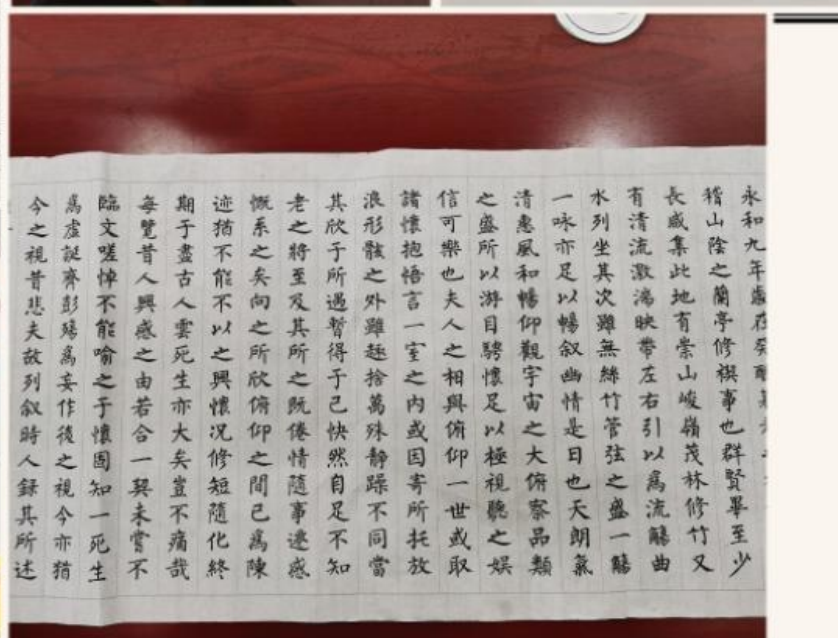 永和九年歲在癸
稽山陰之蘭亭修禊事也群賢畢至少
長咸集此地有崇山峻嶺茂林修竹又
有清流激湍映帶左右引以爲流觴曲
水列坐其次雖無絲竹管弦之盛一觴
一咏亦足以暢叙幽情是日也天朗氣
清惠風和暢仰觀宇宙之大俯察品類
之盛所以游目騁懷足以極視聽之娱
信可樂也夫人之相與俯仰一世或取
諸懷抱悟言一室之内或因寄所托放
浪形骸之外雖趣捨萬殊静躁不同當
其欣于所遇暫得于己快然自足不知
老之將至及其所之既倦情隨事遷感
慨系之矣向之所欣俯仰之間已爲陳
迹猶不能不以之興懷况修短隨化終
期于盡古人雲死生亦大矣豈不痛哉
每覽昔人興感之由若合一契未嘗不
臨文嗟悼不能喻之于懷固知一死生
爲虚誕齊彭殤爲妄作後之視今亦猶
今之視昔悲夫故列叙時人録其所述